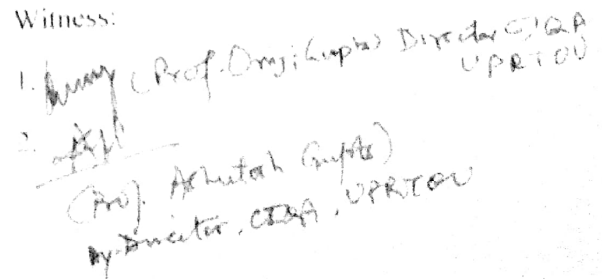 Witness:
1. (Prof. Omji Gupta) Director CIQA
UPRTOU
2.
(Prof. Ashutosh Gupta)
Dy. Director, CIQA, UPRTOU